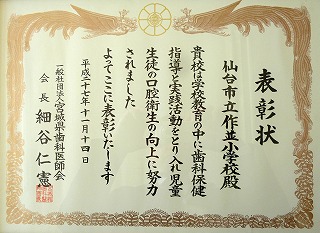 表彰状
仙台市立作並小学校殿
貴校は学校教育の中に歯科保健
指導と実践活動をとり入れ児童
生徒の口腔衛生の向上に努力
されました
よってここに表彰いたします
平成二十七年十一月十四日
一般社団法人宮城県歯科医師会
会長 細谷仁憲